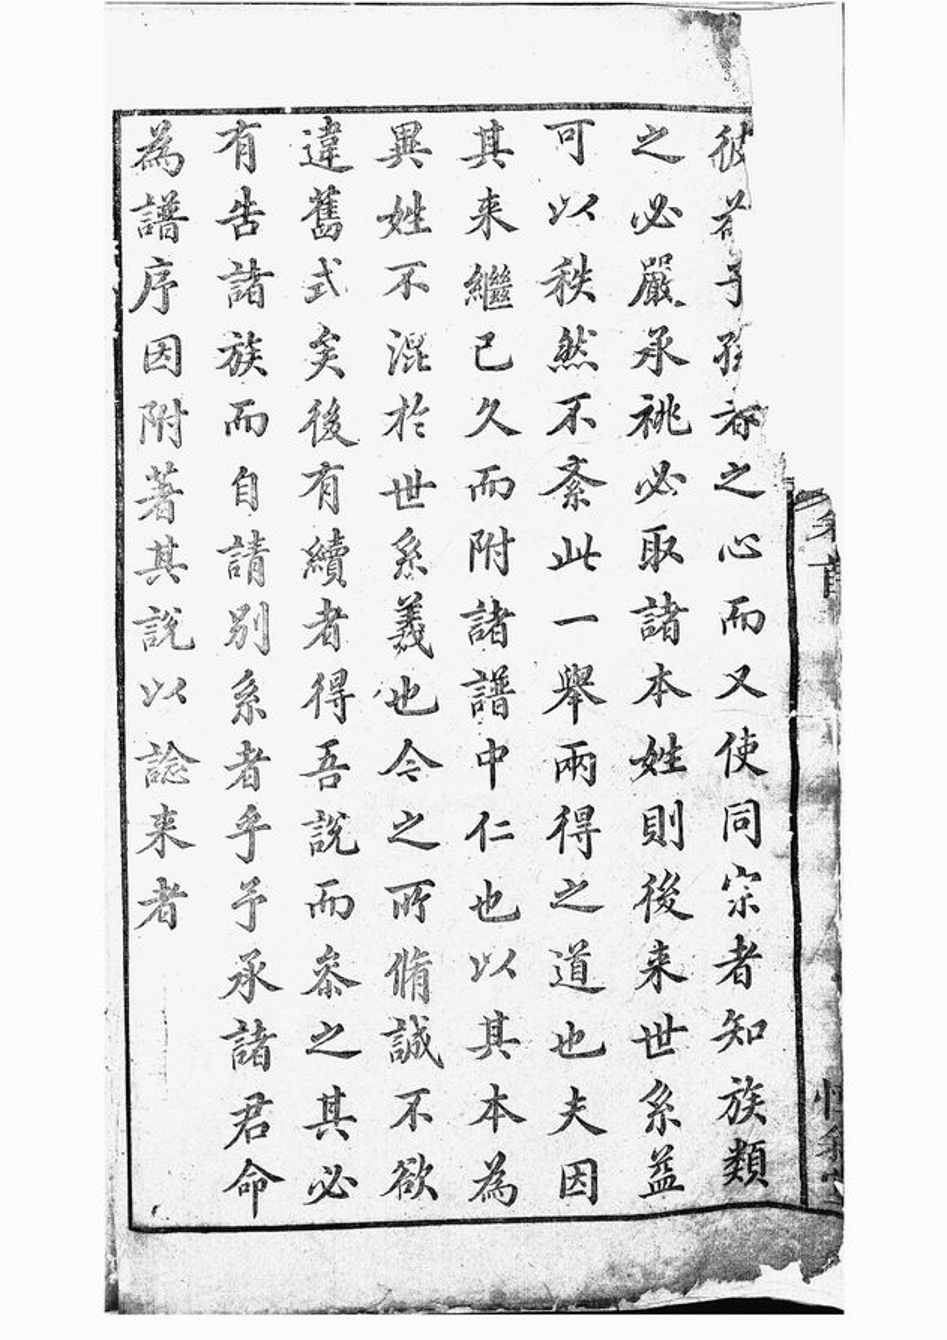 彼為子孫者之心而又使同宗者知族類
之必嚴承祧必取諸本姓則後来世系益
可以秩然不紊此一舉兩得之道也夫因
其来繼已久而附諸譜中仁也以其本為
異姓不混於世系義也今之所脩誠不欲
違舊式矣後有續者得吾說而叅之其必
有告諸族而自請別系者乎予承諸君命
為譜序因附著其說以諗来者